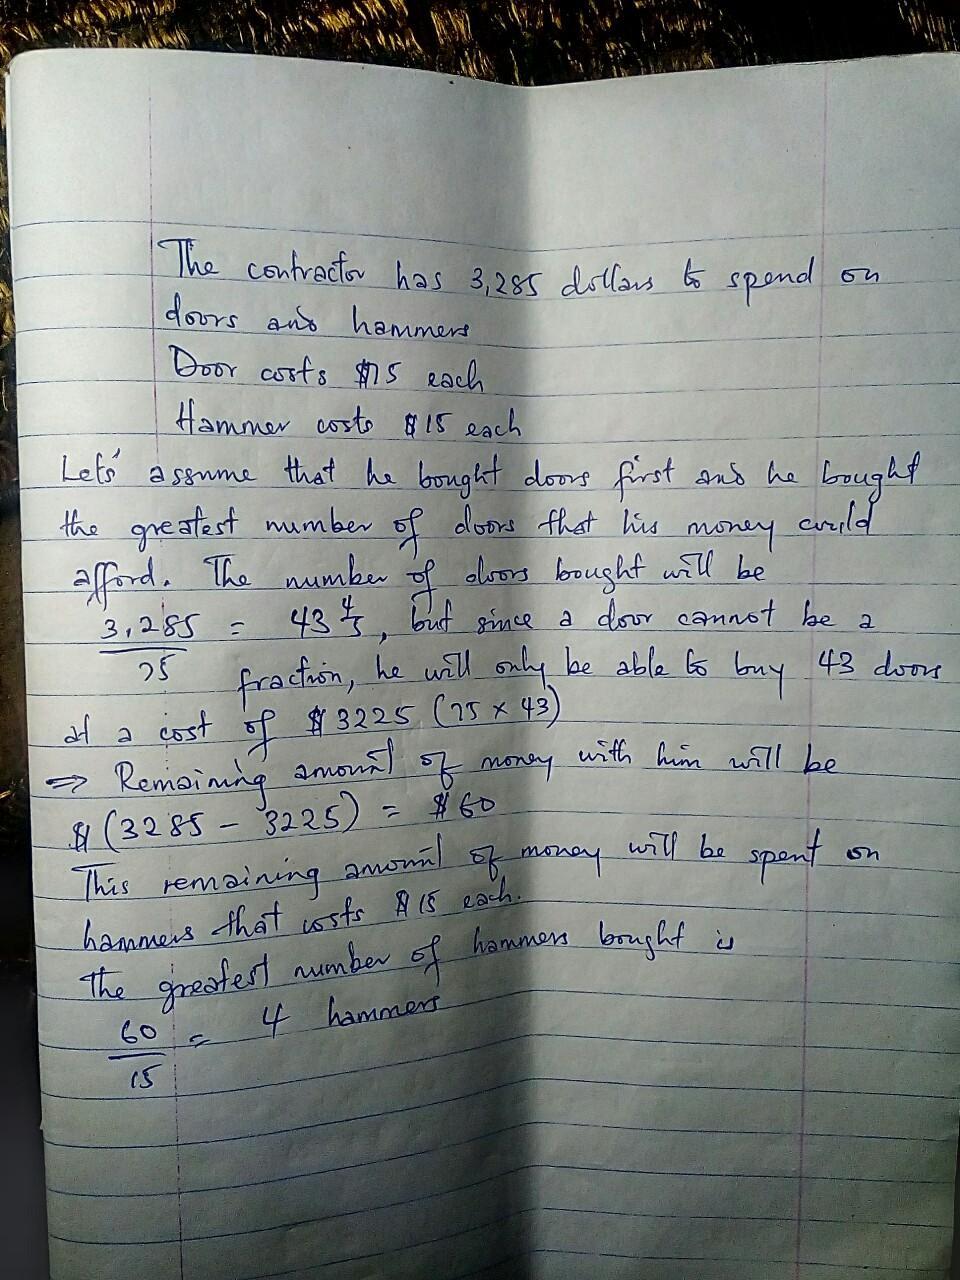 The contractor has 3,285 dollars to spend on
doors and hammers
Door costs $75 each
Hammer costs $15 each
Lets' assume that he bought doors first and he bought
the greatest number of doors that his money could
afford. The number of doors bought will be
3,285/75 = 43 4/5, but since a door cannot be a
fraction, he will only be able to buy 43 doors
at a cost of $3225 (75 x 43)
⇒ Remaining amount of money with him will be
$(3285 - 3225) = $60
This remaining amount of money will be spent on
hammers that costs $15 each.
The greatest number of hammers bought is
60/15 = 4 hammers